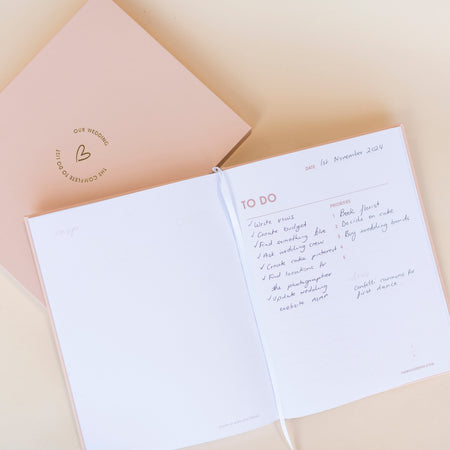 OUR WEDDING
THE COMPLETE TO DO LIST
DATE 1st November 2024
TO DO
PRIORITIES
✓ Write vows
✓ Create budget
✓ Find something blue
✓ Ask wedding crew
✓ Create cake pinterest
✓ Find locations for
the photographer
✓ Update wedding
website ASAP
1 Book florist
2 Decide on cake
3 Buy wedding bands
4
5
Confetti cannons for
first dance